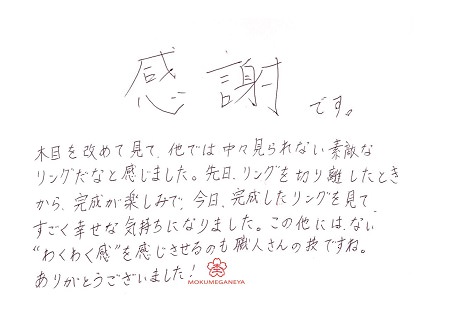 感謝です。
木目を改めて見て、他では中々見られない素敵な
リングだなと感じました。先日、リングを切り離したとき
から、完成が楽しみで、今日、完成したリングを見て
すごく幸せな気持ちになりました。この他には、ない
“わくわく感”を感じさせるのも職人さんの技ですね。
ありがとうございました!
MOKUMEGANEYA